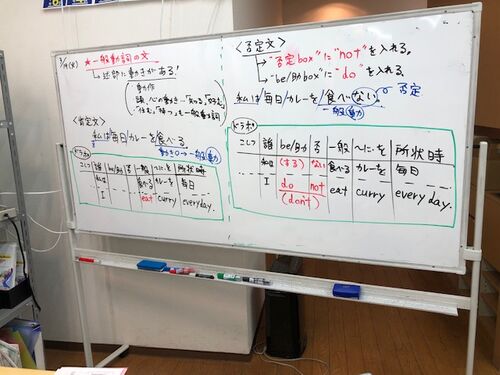 ★一般動詞の文
→述部に動きがある!
動作
「住む」、「持つ」も一般動詞
<肯定文>
私は/毎日/カレーを/食べる。
動き○→一般(動)
ドラポ
こしつ 誰 be/助 否 一般 〜に・を 所状時
私は 食べる カレーを 毎日
I eat curry everyday.
<否定文>
→"否定box"に"not"を入れる。
→"be/助box"に"do"を入れる。
私は/毎日/カレーを/食べない○否定
一般(動)
ドラポ
こしつ 誰 be/助 否 一般 〜に・を 所状時
私は (する) ない 食べる カレーを 毎日
I do not eat curry everyday.
(don't)